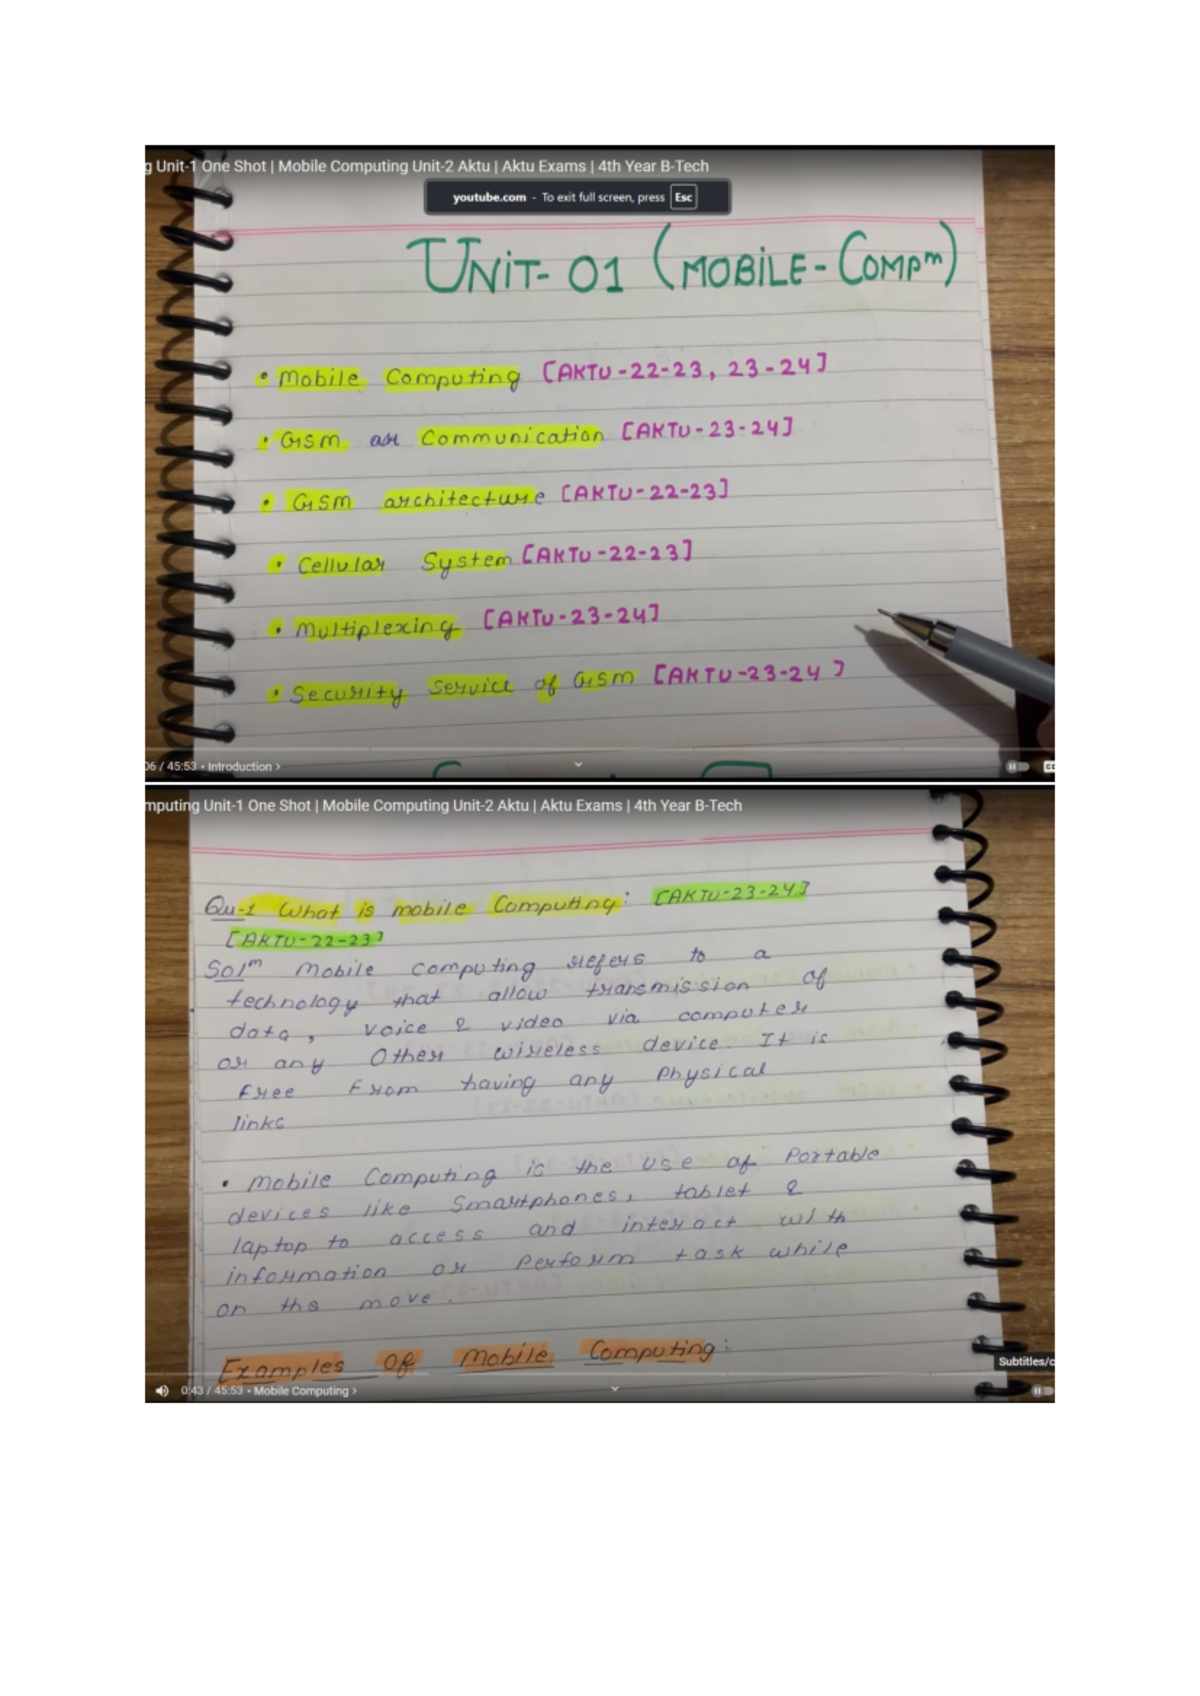 g Unit-1 One Shot | Mobile Computing Unit-2 Aktu | Aktu Exams | 4th Year B-Tech
youtube.com - To exit full screen, press Esc
UNIT-01 (MOBILE-COMPⁿ)
• Mobile Computing [AKTU-22-23, 23-24]
• GSM as Communication [AKTU-23-24]
• GSM architecture [AKTU-22-23]
• Cellular System [AKTU-22-23]
• Multiplexing [AKTU-23-24]
• Security Service of GSM [AKTU-23-24]
06 / 45:53 • Introduction >
mputing Unit-1 One Shot | Mobile Computing Unit-2 Aktu | Aktu Exams | 4th Year B-Tech
Qu-1 What is mobile Computing: [AKTU-23-24]
[AKTU-22-23]
Solⁿ Mobile computing refers to a
technology that allow transmission of
data, voice & video via computer
or any Other wireless device. It is
free from having any physical
links
• Mobile Computing is the use of Portable
devices like Smartphones, tablet &
laptop to access and interact with
information or perform task while
on the move.
Examples Of Mobile Computing:
Subtitles/c
0:43 / 45:53 • Mobile Computing >